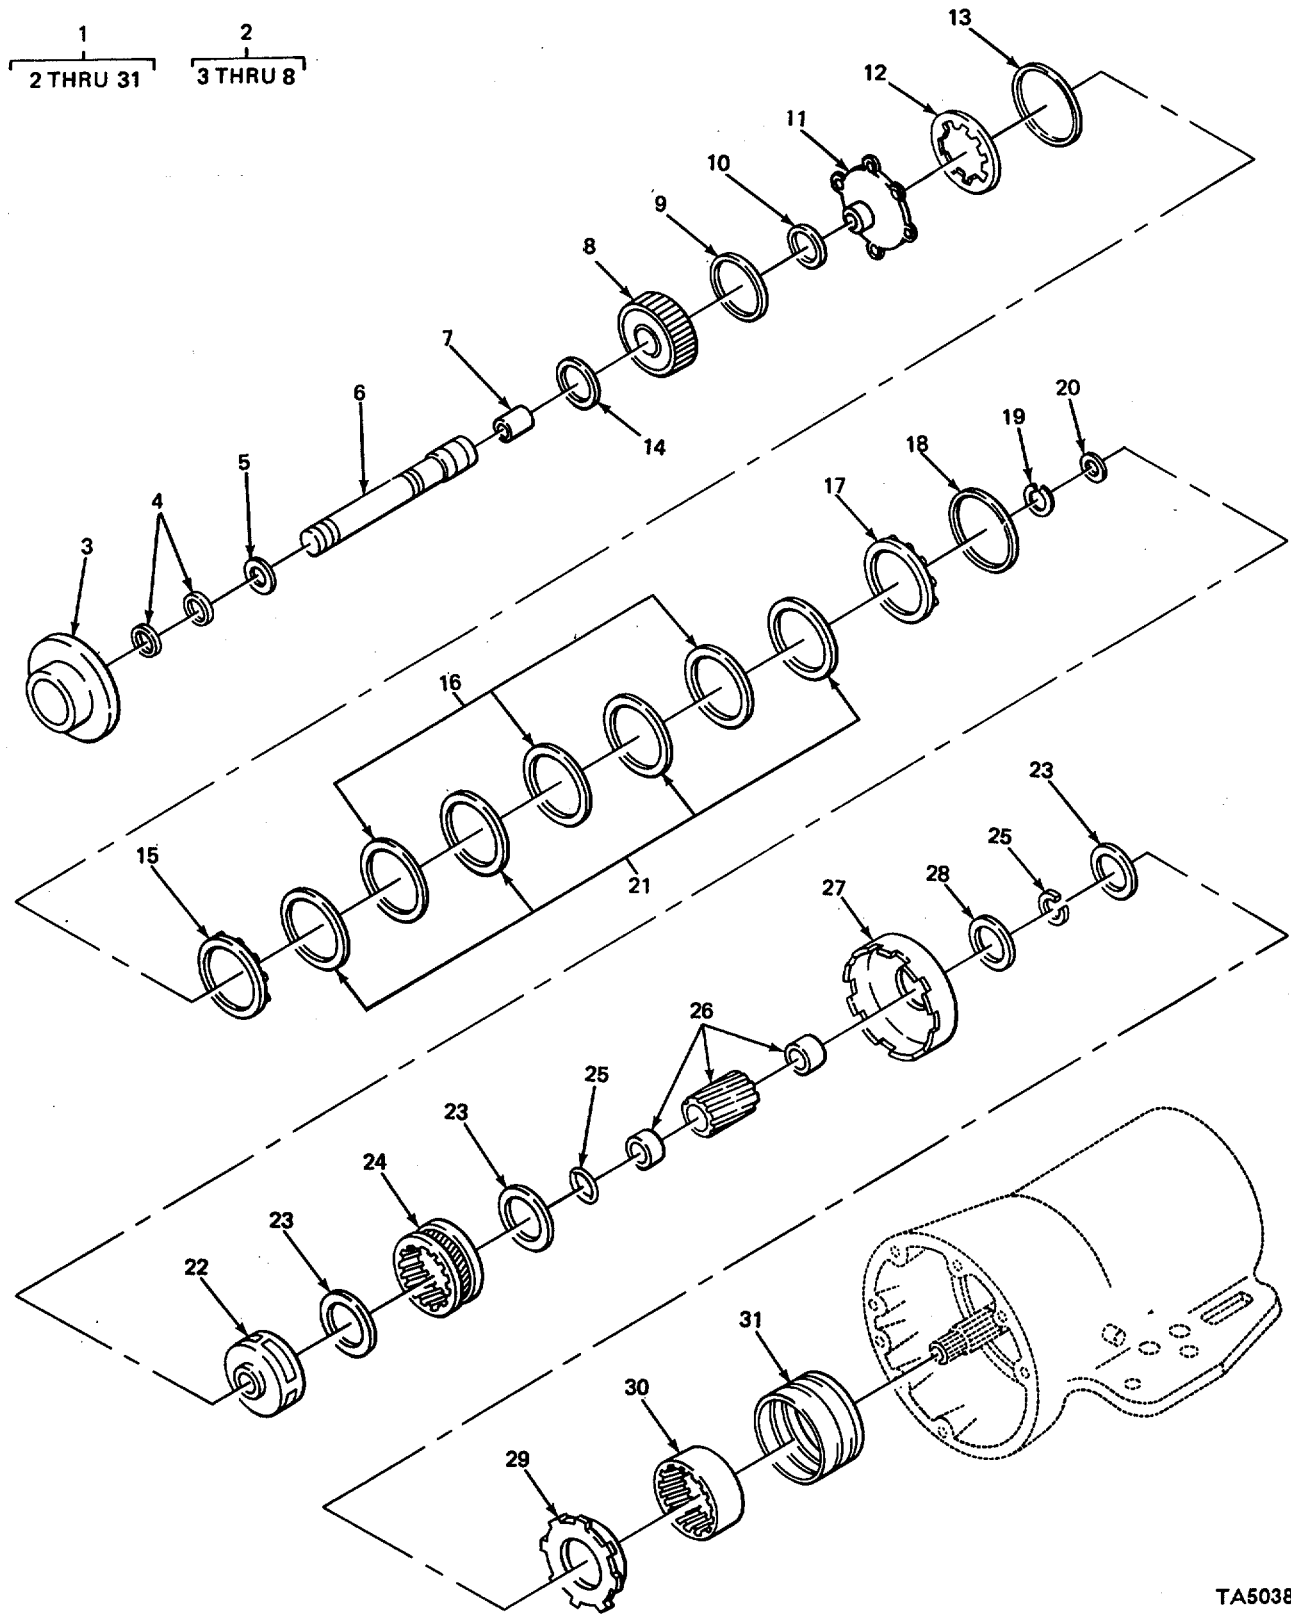 1
2 THRU 31
2
3 THRU 8
13
12
11
10
9
8
7
6
14
5
4
3
20
19
18
17
16
15
21
23
25
28
27
26
25
23
24
23
22
31
30
29
TA5038